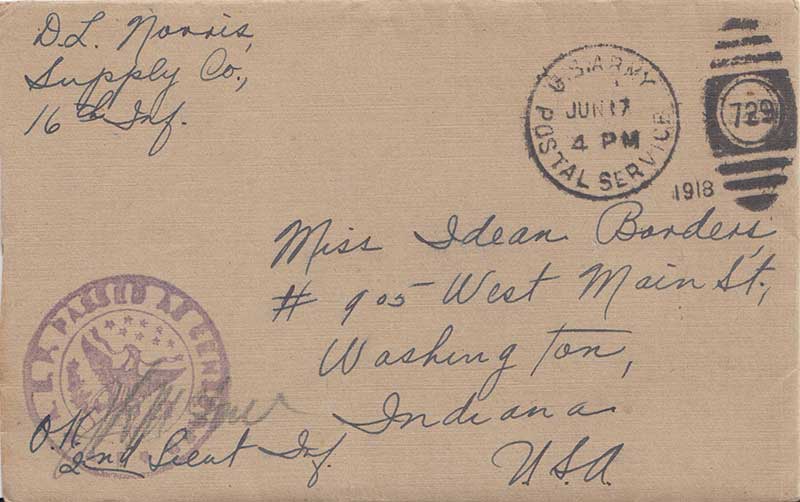 D.L. Norris,
Supply Co.,
16th Inf.
U.S. ARMY
POSTAL SERVICE
JUN 17
4 PM
1918
729
Miss Idean Borders,
# 905 West Main St.,
Washington,
Indiana
U.S.A.
PASSED AS CEN
O.K.
2nd Lieut Inf.